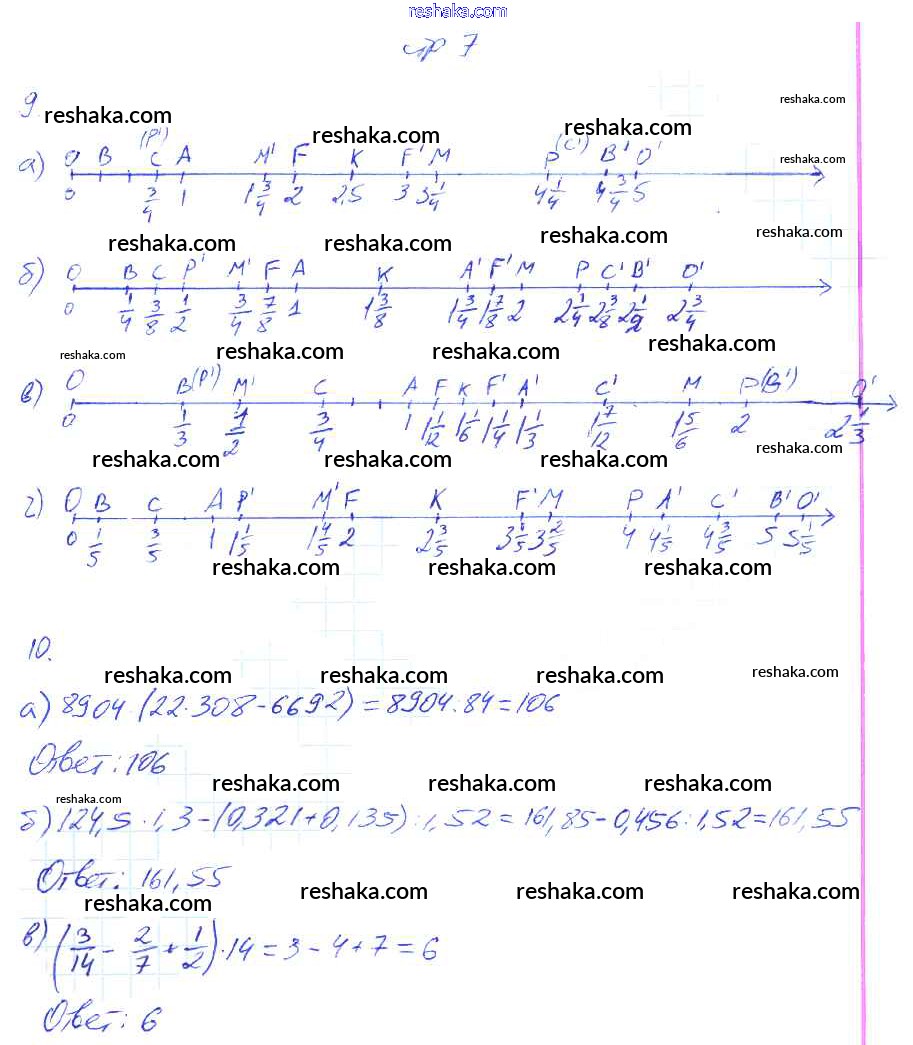 reshaka.com
стр 7
9
reshaka.com reshaka.com reshaka.com reshaka.com
(P') (C')
а) O B C A M' F K F' M P B' O' reshaka.com
0 3/4 1 1 3/4 2 2,5 3 3 1/4 4 1/4 4 3/4 5
reshaka.com reshaka.com reshaka.com reshaka.com
б) O B C P' M' F A K A' F' M P C' B' O'
0 1/4 3/8 1/2 3/4 7/8 1 1 3/8 1 3/4 1 7/8 2 2 1/4 2 3/8 2 1/2 2 3/4
reshaka.com reshaka.com reshaka.com reshaka.com
в) O B(P') M' C A F K F' A' C' M P(B') O'
0 1/3 1/2 3/4 1 1 1/12 1 1/6 1 1/4 1 1/3 1 7/12 1 5/6 2 2 1/3
reshaka.com reshaka.com reshaka.com reshaka.com
г) O B C A P' M' F K F' M P A' C' B' O'
0 1/5 3/5 1 1 1/5 1 4/5 2 2 3/5 3 1/5 3 2/5 4 4 1/5 4 3/5 5 5 1/5
reshaka.com reshaka.com reshaka.com
10.
reshaka.com reshaka.com reshaka.com reshaka.com
а) 8904:(22·308-6692)=8904:84=106
Ответ: 106
reshaka.com reshaka.com reshaka.com reshaka.com
б) 124,5·1,3-(0,321+0,135):1,52=161,85-0,456:1,52=161,55
Ответ: 161,55
reshaka.com reshaka.com reshaka.com reshaka.com
в) (3/14 - 2/7 + 1/2)·14=3-4+7=6
Ответ: 6